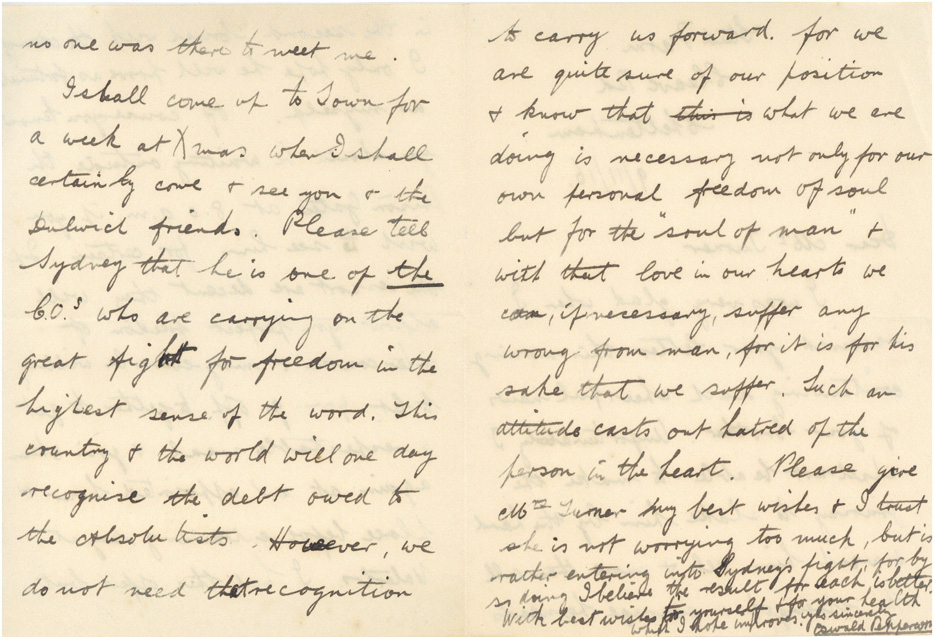 no one was there to meet me.
I shall come up to Town for
a week at Xmas when I shall
certainly come & see you & the
Dulwich friends. Please tell
Sydney that he is one of the
C.O.s who are carrying on the
great fight for freedom in the
highest sense of the word. This
country & the world will one day
recognise the debt owed to
the absolutists. However, we
do not need that recognition
to carry us forward. for we
are quite sure of our position
& know that this is what we are
doing is necessary not only for our
own personal freedom of soul
but for the "soul of man" &
with that love in our hearts we
can, if necessary, suffer any
wrong from man, for it is for his
sake that we suffer. Such an
attitude casts out hatred of the
person in the heart. Please give
Mrs Turner my best wishes & I trust
she is not worrying too much, but is
rather entering into Sydney's fight, for by
so doing I believe the result for each is better.
With best wishes for yourself & for your health
which I hope improves. yrs sincerely
Oswald Pepperson